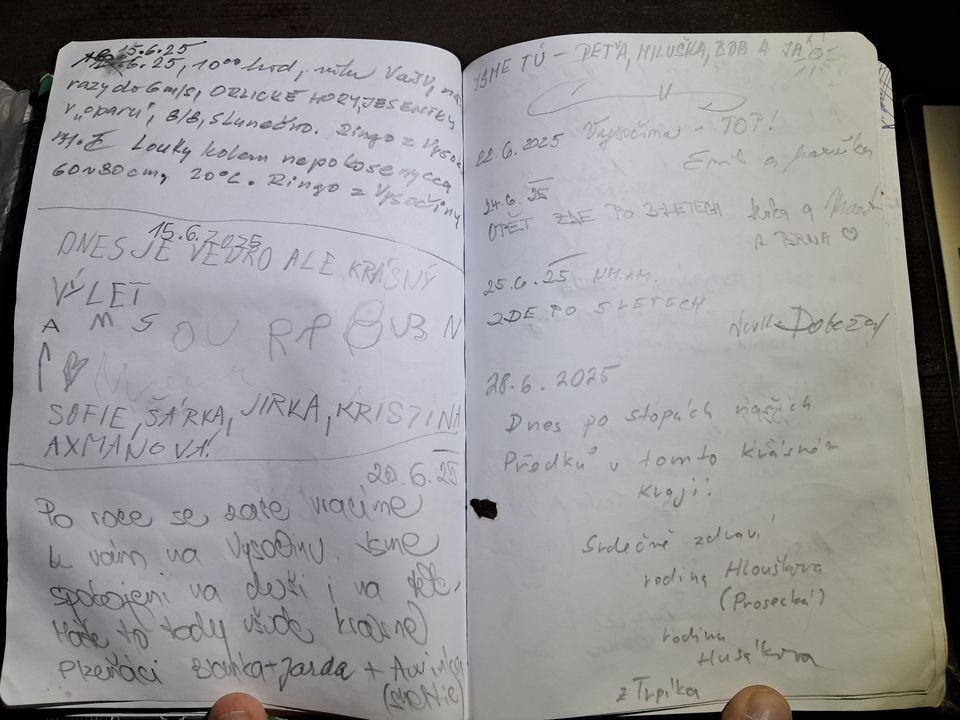 15.6.25
6.25, 10⁰⁰ hod,
razy do 6m/s, ORLICKÉ HORY, JESENÍKY
v "oparu", 8/8, slunečno. Ringo z Vysoč
Louky kolem nepokoseny cca
60~80cm, 20°C. Ringo z Vysočiny
15.6.2025
DNES JE VEDRO ALE KRÁSNÝ
VÝLET
A M S OU
SOFIE, ŠÁRKA, JIRKA, KRISTÍNA
AXMANOVÁ!
20.6.25
Po roce se zase vracíme
k vám na Vysočinu. Jsme
spokojeni na dešti i na
Máte to tady všude krásné
Plzeňáci Blanka+Jarda +
JSME TÚ - PEŤA, MILUŠKA, BOB A JÁ
22.6.2025 Vysočina - TOP!
Emil a Maruška
24.6.25
OPĚT ZDE PO 3 LETECH
Z BRNA ♡
25.6.25 NM.NM.
ZDE PO 5 LETECH
28.6.2025
Dnes po stopách našich
Předků v tomto krásném
kraji!
Srdečně zdraví
rodina Hlouškova
(Prosecká)
rodina
Husákova
z Trpíka